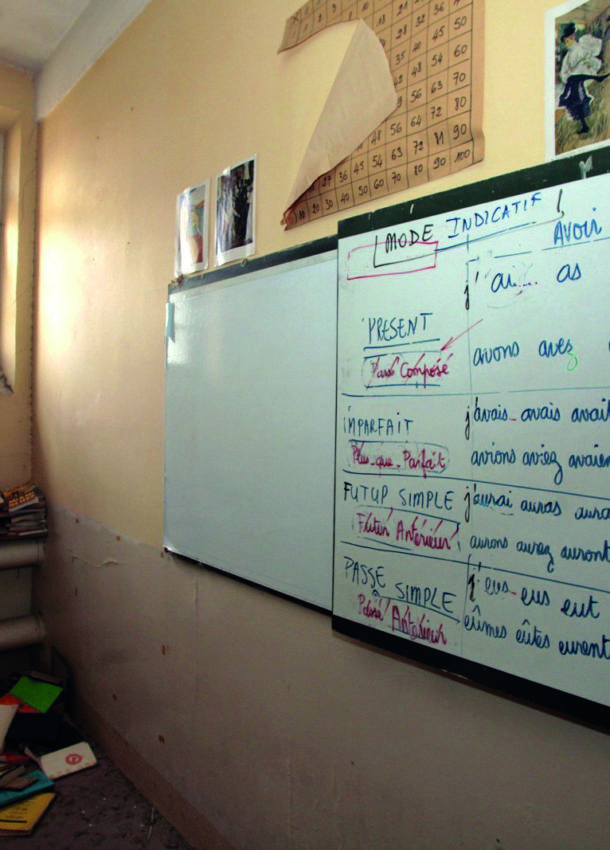 1 2 3
28 32 36
35 40 45 50
48 54 60
56 63 70
48 56 64 72 80
27 36 45 54 63 72 81 90
10 20 30 40 50 60 70 80 90 100
MODE INDICATIF
AVOIR
j' ai... as
PRESENT
Passé Composé avons avez
IMPARFAIT j'avais avais avait
Plus-que-Parfait avions aviez avaien
FUTUR SIMPLE j'aurai auras aura
Futur Antérieur aurons aurez auront
PASSÉ SIMPLE j'eus eus eut
Passé Antérieur eûmes eûtes eurent